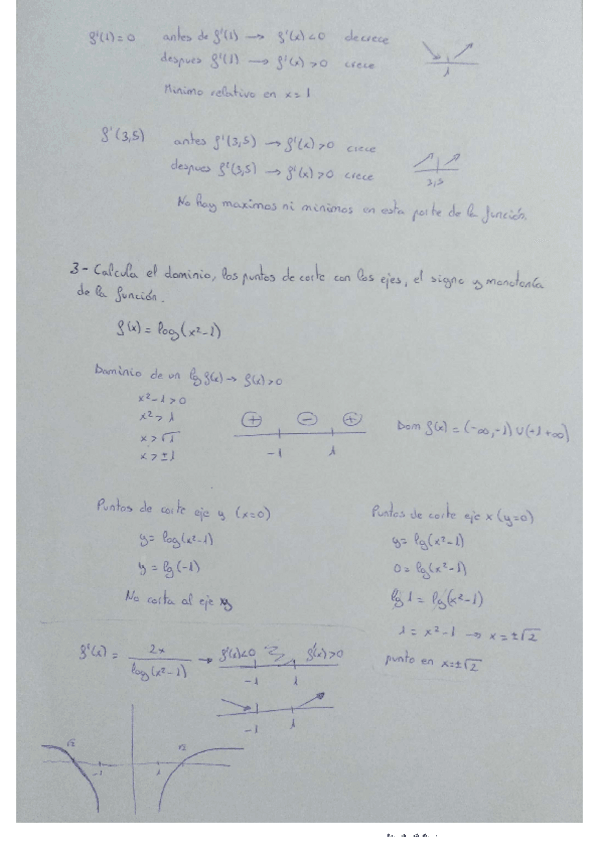 f'(1)=0 antes de f'(1) → f'(x)<0 decrece
despues f'(1) → f'(x)>0 crece
1
Minimo relativo en x=1
f'(3,5) antes f'(3,5) → f'(x)>0 crece
despues f'(3,5) → f'(x)>0 crece
3,5
No hay maximos ni minimos en esta parte de la función.
3- Calcula el dominio, los puntos de corte con los ejes, el signo y monotonía
de la función.
f(x) = log(x²-1)
Dominio de un lg f(x) → f(x)>0
x²-1>0
x²>1
x>√1
x>±1
+ - +
-1 1
Dom f(x) = (-∞,-1)∪(+1+∞)
Puntos de corte eje y (x=0)
y= log(x²-1)
y= lg(-1)
No corta al eje y
Puntos de corte eje x (y=0)
y= lg(x²-1)
0= lg(x²-1)
lg 1 = lg(x²-1)
1 = x²-1 → x=±√2
punto en x=±√2
f'(x) = 2x / log(x²-1) → f'(x)<0 f'(x)>0
-1 1
-1 1
√2 √2
-1 1